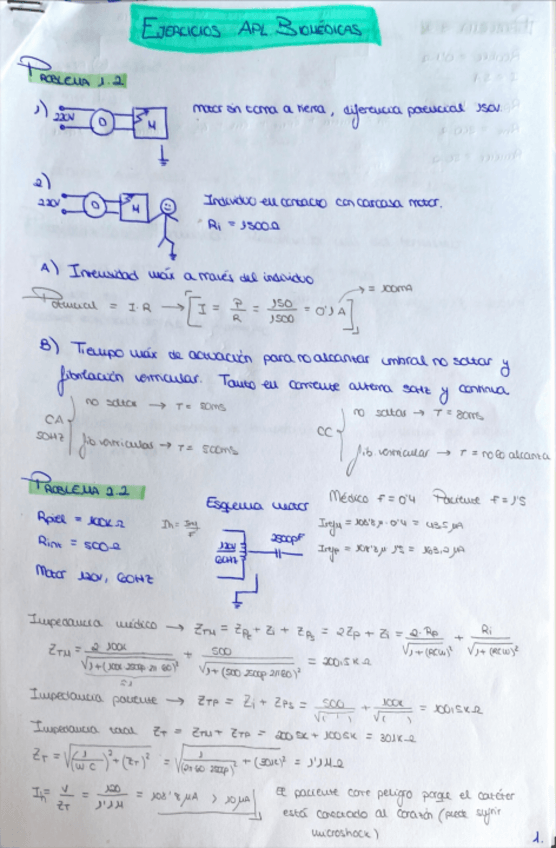 EJERCICIOS APL BIOMÉDICAS
PROBLEMA 1.2
1) 220V D M motor sin toma a tierra, diferencia potencial 150V.
2)
220V D M Individuo en contacto con carcasa motor.
Ri = 1500Ω
A) Intensidad máx a través del individuo
Potencial = I·R → [I = P/R = 150/1500 = 0'1A] → = 100mA
B) Tiempo máx de actuación para no alcanzar umbral no soltar y
fibrilación ventricular. Tanto en corriente alterna 50Hz y continua
CA 50Hz
no soltar → T = 80ms
fib. ventricular → T = 500ms
CC
no soltar → T = 80ms
fib. ventricular → T = no lo alcanza
PROBLEMA 2.2
Esquema motor
Médico f = 0'4 Paciente f = 1'5
Rpiel = 100kΩ
Rint = 500Ω
Motor 120V, 60Hz
120V
60Hz
2500pF
Impedancia médico → ZTM = ZP2 + Zi + ZP3 = 2Zp + Zi = 2·Rp/√1+(RCW)² + Ri/√1+(RCW)²
ZTM = 2·100k/√1+(100k·2500p·2π60)² + 500/√1+(500·2500p·2π60)² = 200,5kΩ
Impedancia paciente → ZTP = Zi + ZPs = 500/√( ) + 100k/√( ) = 100,5kΩ
Impedancia total ZT = ZTM + ZTP = 200,5k + 100,5k = 301kΩ
ZT = √(1/WC)² + (ZT)² = √(1/2π60·2500p)² + (301k)² = 1'1MΩ
Ih = V/ZT = 120/1'1M = 108'8μA > 10μA
El paciente corre peligro porque el catéter
está conectado al corazón (puede sufrir
microshock)
1.